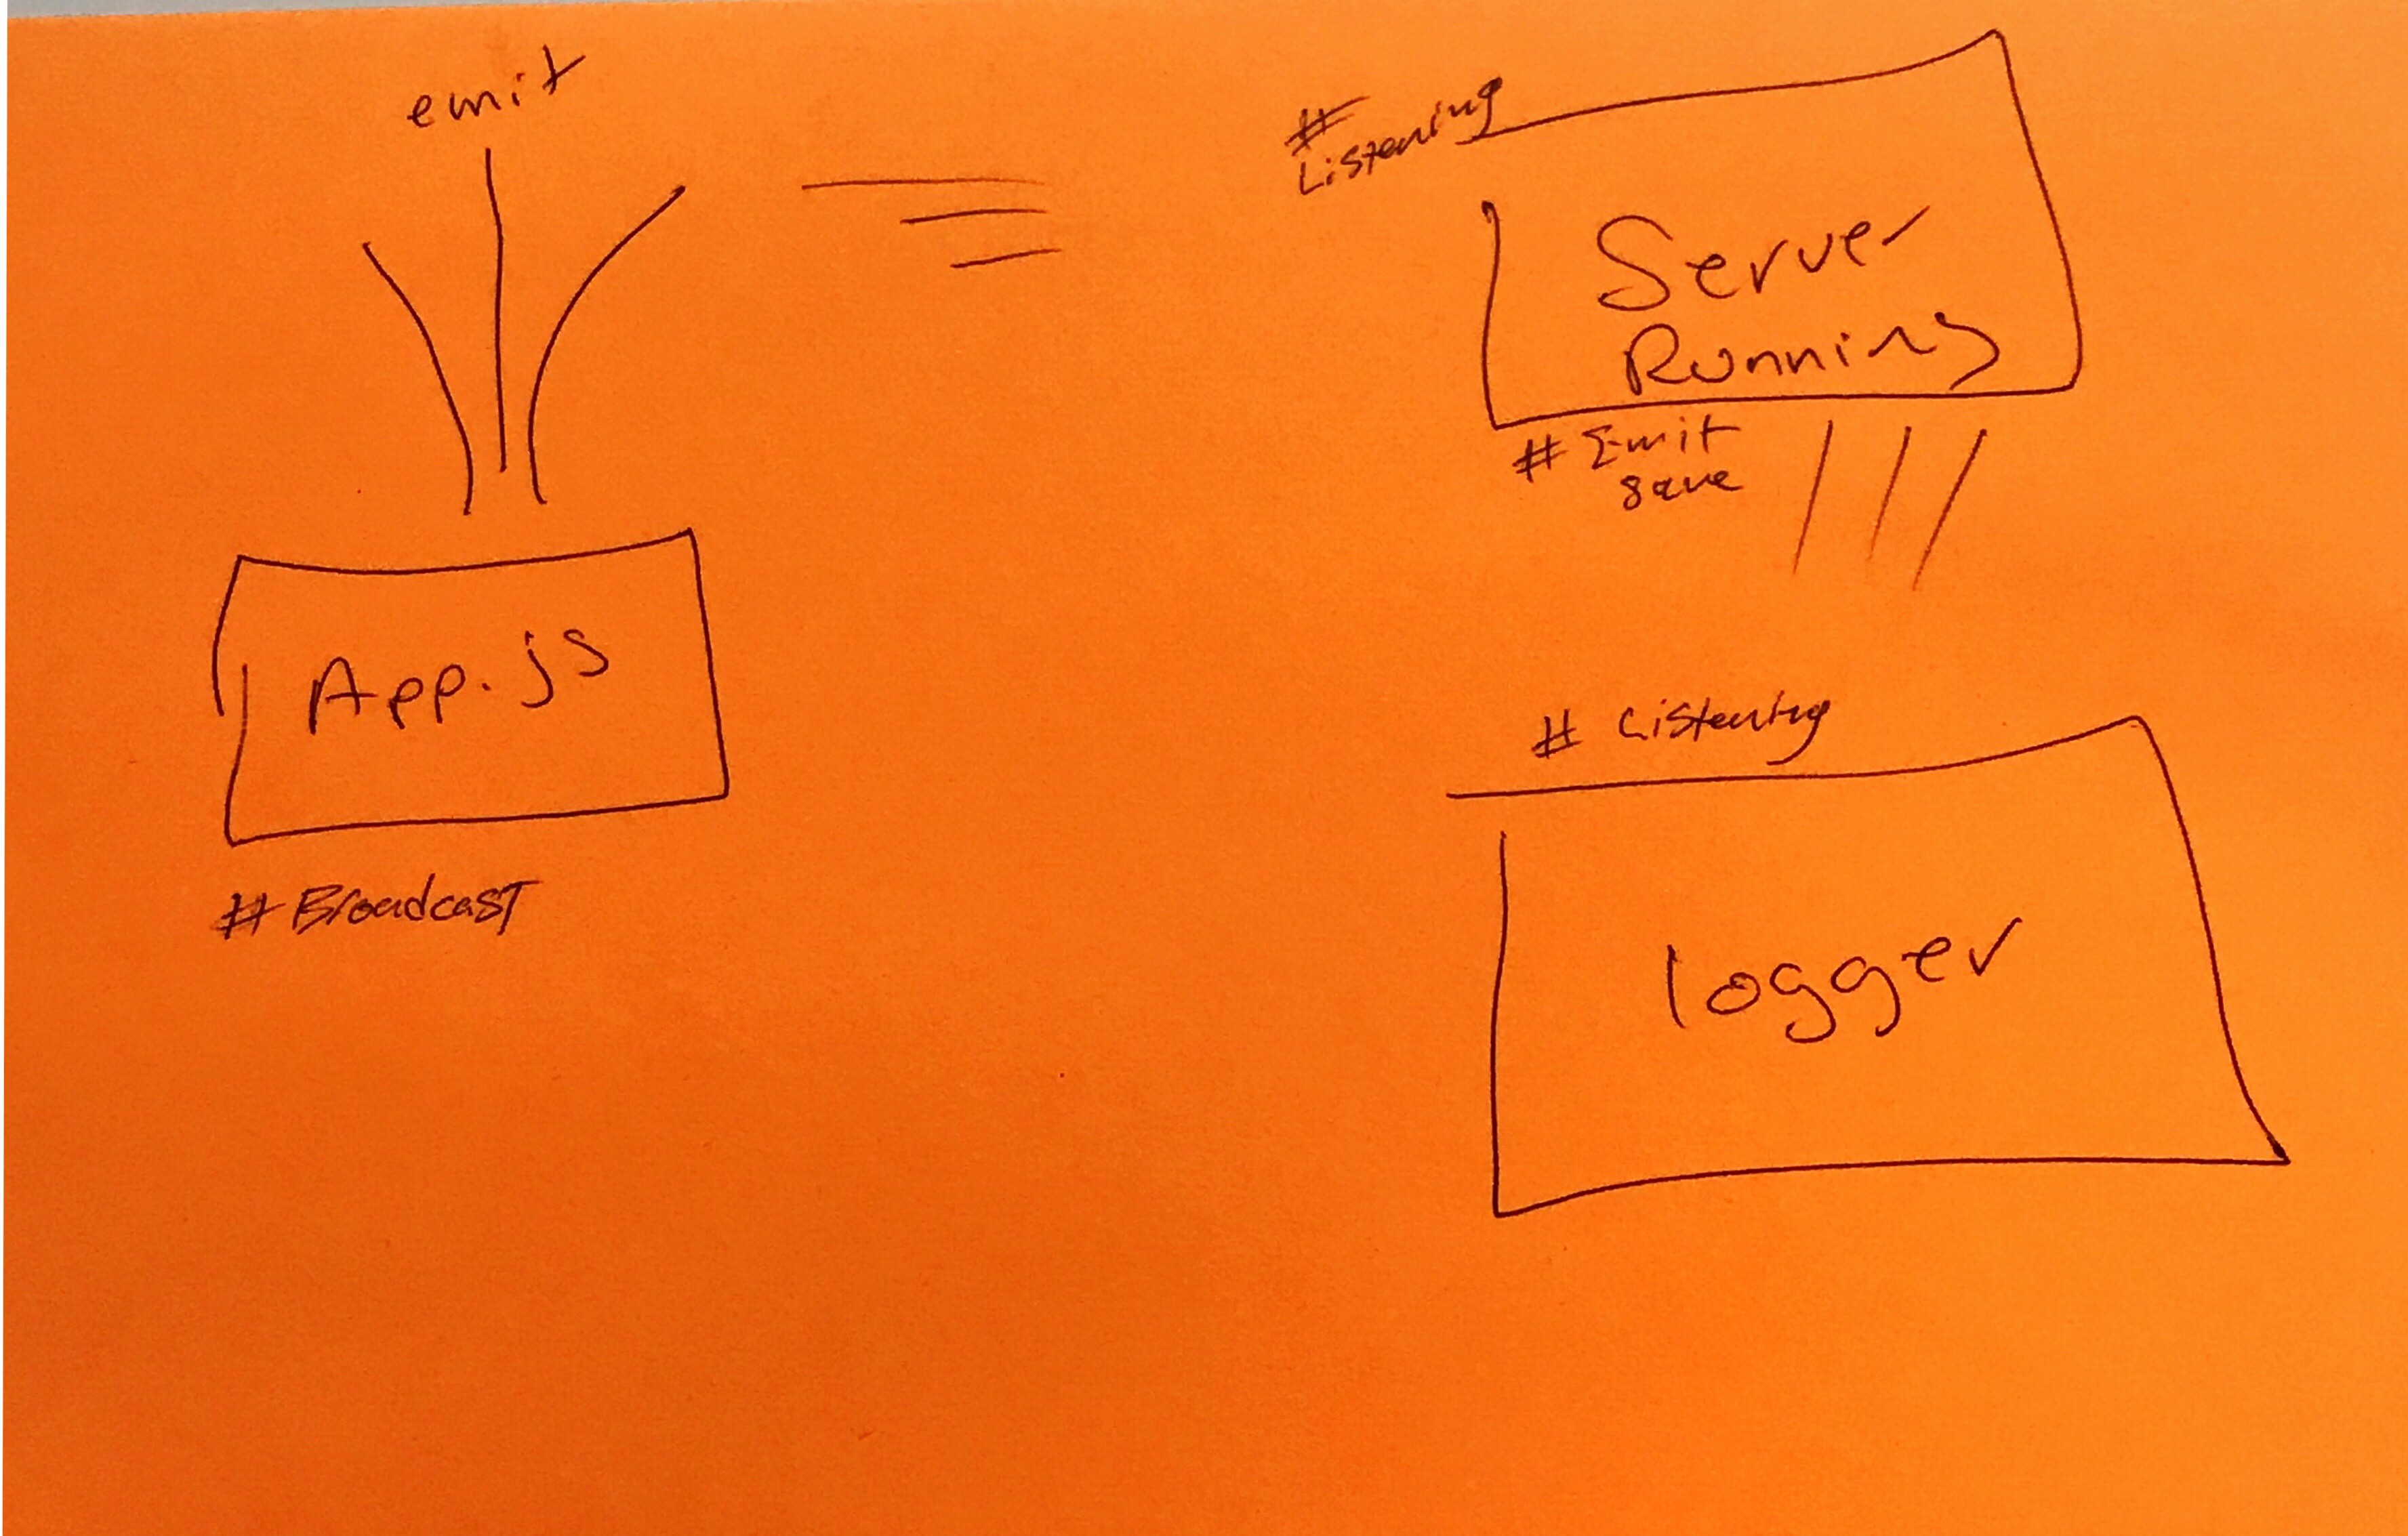 emit
App.js
# Broadcast
#
Listening
Server
Running
# Emit
save
# Listening
logger